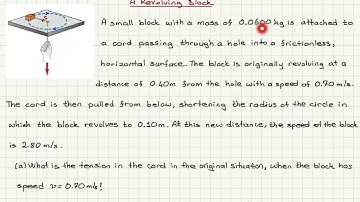 A Revolving Block
A small block with a mass of 0.0600 kg is attached
to a cord passing through a hole into a frictionless,
horizontal surface. The block is originally revolving at a
distance of 0.40m from the hole with a speed of 0.70 m/s.
The cord is then pulled from below, shortening the radius of the circle in
which the block revolves to 0.10m. At this new distance, the speed of the block
is 2.80 m/s.
(a) What is the tension in the cord in the original situation, when the block has
speed v=0.70 m/s?